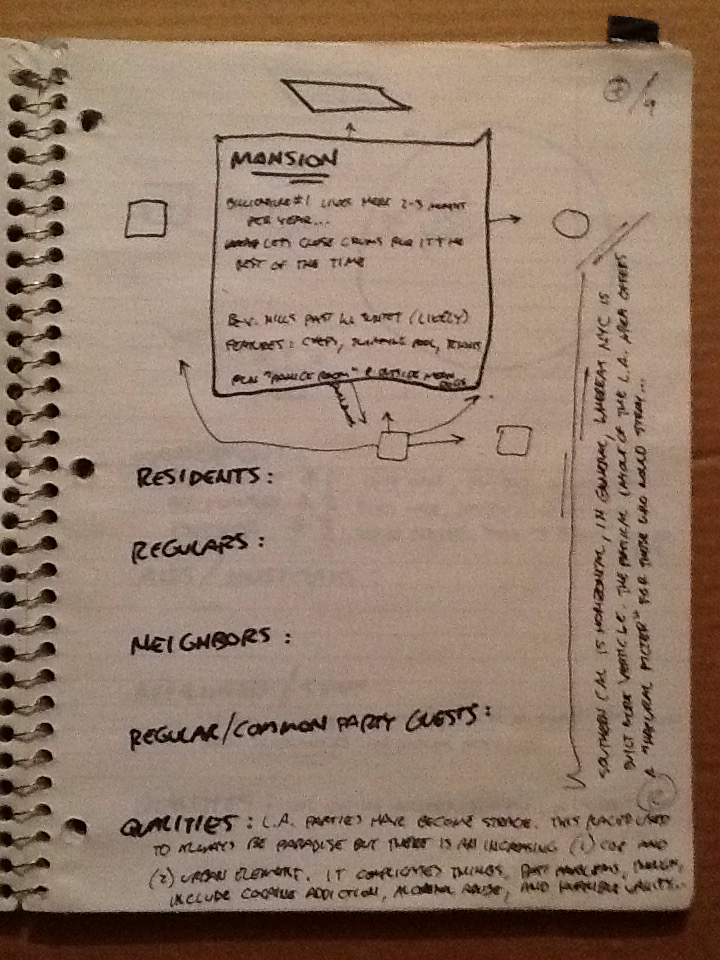 MANSION
BILLIONAIRE #1 LIVES HERE 2-3 MONTHS
PER YEAR...
LETS CLOSE CHUMS RUN IT THE
REST OF THE TIME
BEV. HILLS PAST W. SUNSET (LIKELY)
FEATURES: CHEFS, SWIMMING POOL, TENNIS
"PANICE ROOM" & OUTSIDE
DOGS
RESIDENTS:
REGULARS:
NEIGHBORS:
REGULAR/COMMON PARTY GUESTS:
QUALITIES: L.A. PARTIES HAVE BECOME STRANGE. THIS PLACED USED
TO ALWAYS BE PARADISE BUT THERE IS AN INCREASING (1) COP AND
(2) URBAN ELEMENT. IT COMPLICATES THINGS. PAST PROBLEMS, THOUGH,
INCLUDE COCAINE ADDICTION, ALCOHOL ABUSE, AND HORRIBLE VANITY...
SOUTHERN CAL IS HORIZONTAL, IN GENERAL, WHEREAS NYC IS
BUILT MORE VERTICLE. THE PHYSICAL LAYOUT OF THE L.A. AREA OFFERS
A "NATURAL FILTER" FOR THOSE WHO WOULD STRAY...